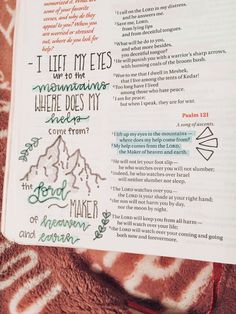 memorized it. What are
some of your favorite
verses, and why do they
appeal to you? When you
are worried or stressed
out, where do you look for
help?
- I LIFT MY EYES
UP to the
mountains
WHERE DOES MY
help
come from?
the
Lord
MAKER
of heaven
and earth
¹ I call on the LORD in my distress,
and he answers me.
² Save me, LORD,
from lying lips
and from deceitful tongues.
³ What will he do to you,
and what more besides,
you deceitful tongue?
⁴ He will punish you with a warrior's sharp arrows,
with burning coals of the broom bush.
⁵ Woe to me that I dwell in Meshek,
that I live among the tents of Kedar!
⁶ Too long have I lived
among those who hate peace.
⁷ I am for peace;
but when I speak, they are for war.
Psalm 121
A song of ascents.
¹ I lift up my eyes to the mountains —
where does my help come from?
² My help comes from the LORD,
the Maker of heaven and earth.
³ He will not let your foot slip —
he who watches over you will not slumber;
⁴ indeed, he who watches over Israel
will neither slumber nor sleep.
⁵ The LORD watches over you —
the LORD is your shade at your right hand;
⁶ the sun will not harm you by day,
nor the moon by night.
⁷ The LORD will keep you from all harm —
he will watch over your life;
⁸ the LORD will watch over your coming and going
both now and forevermore.